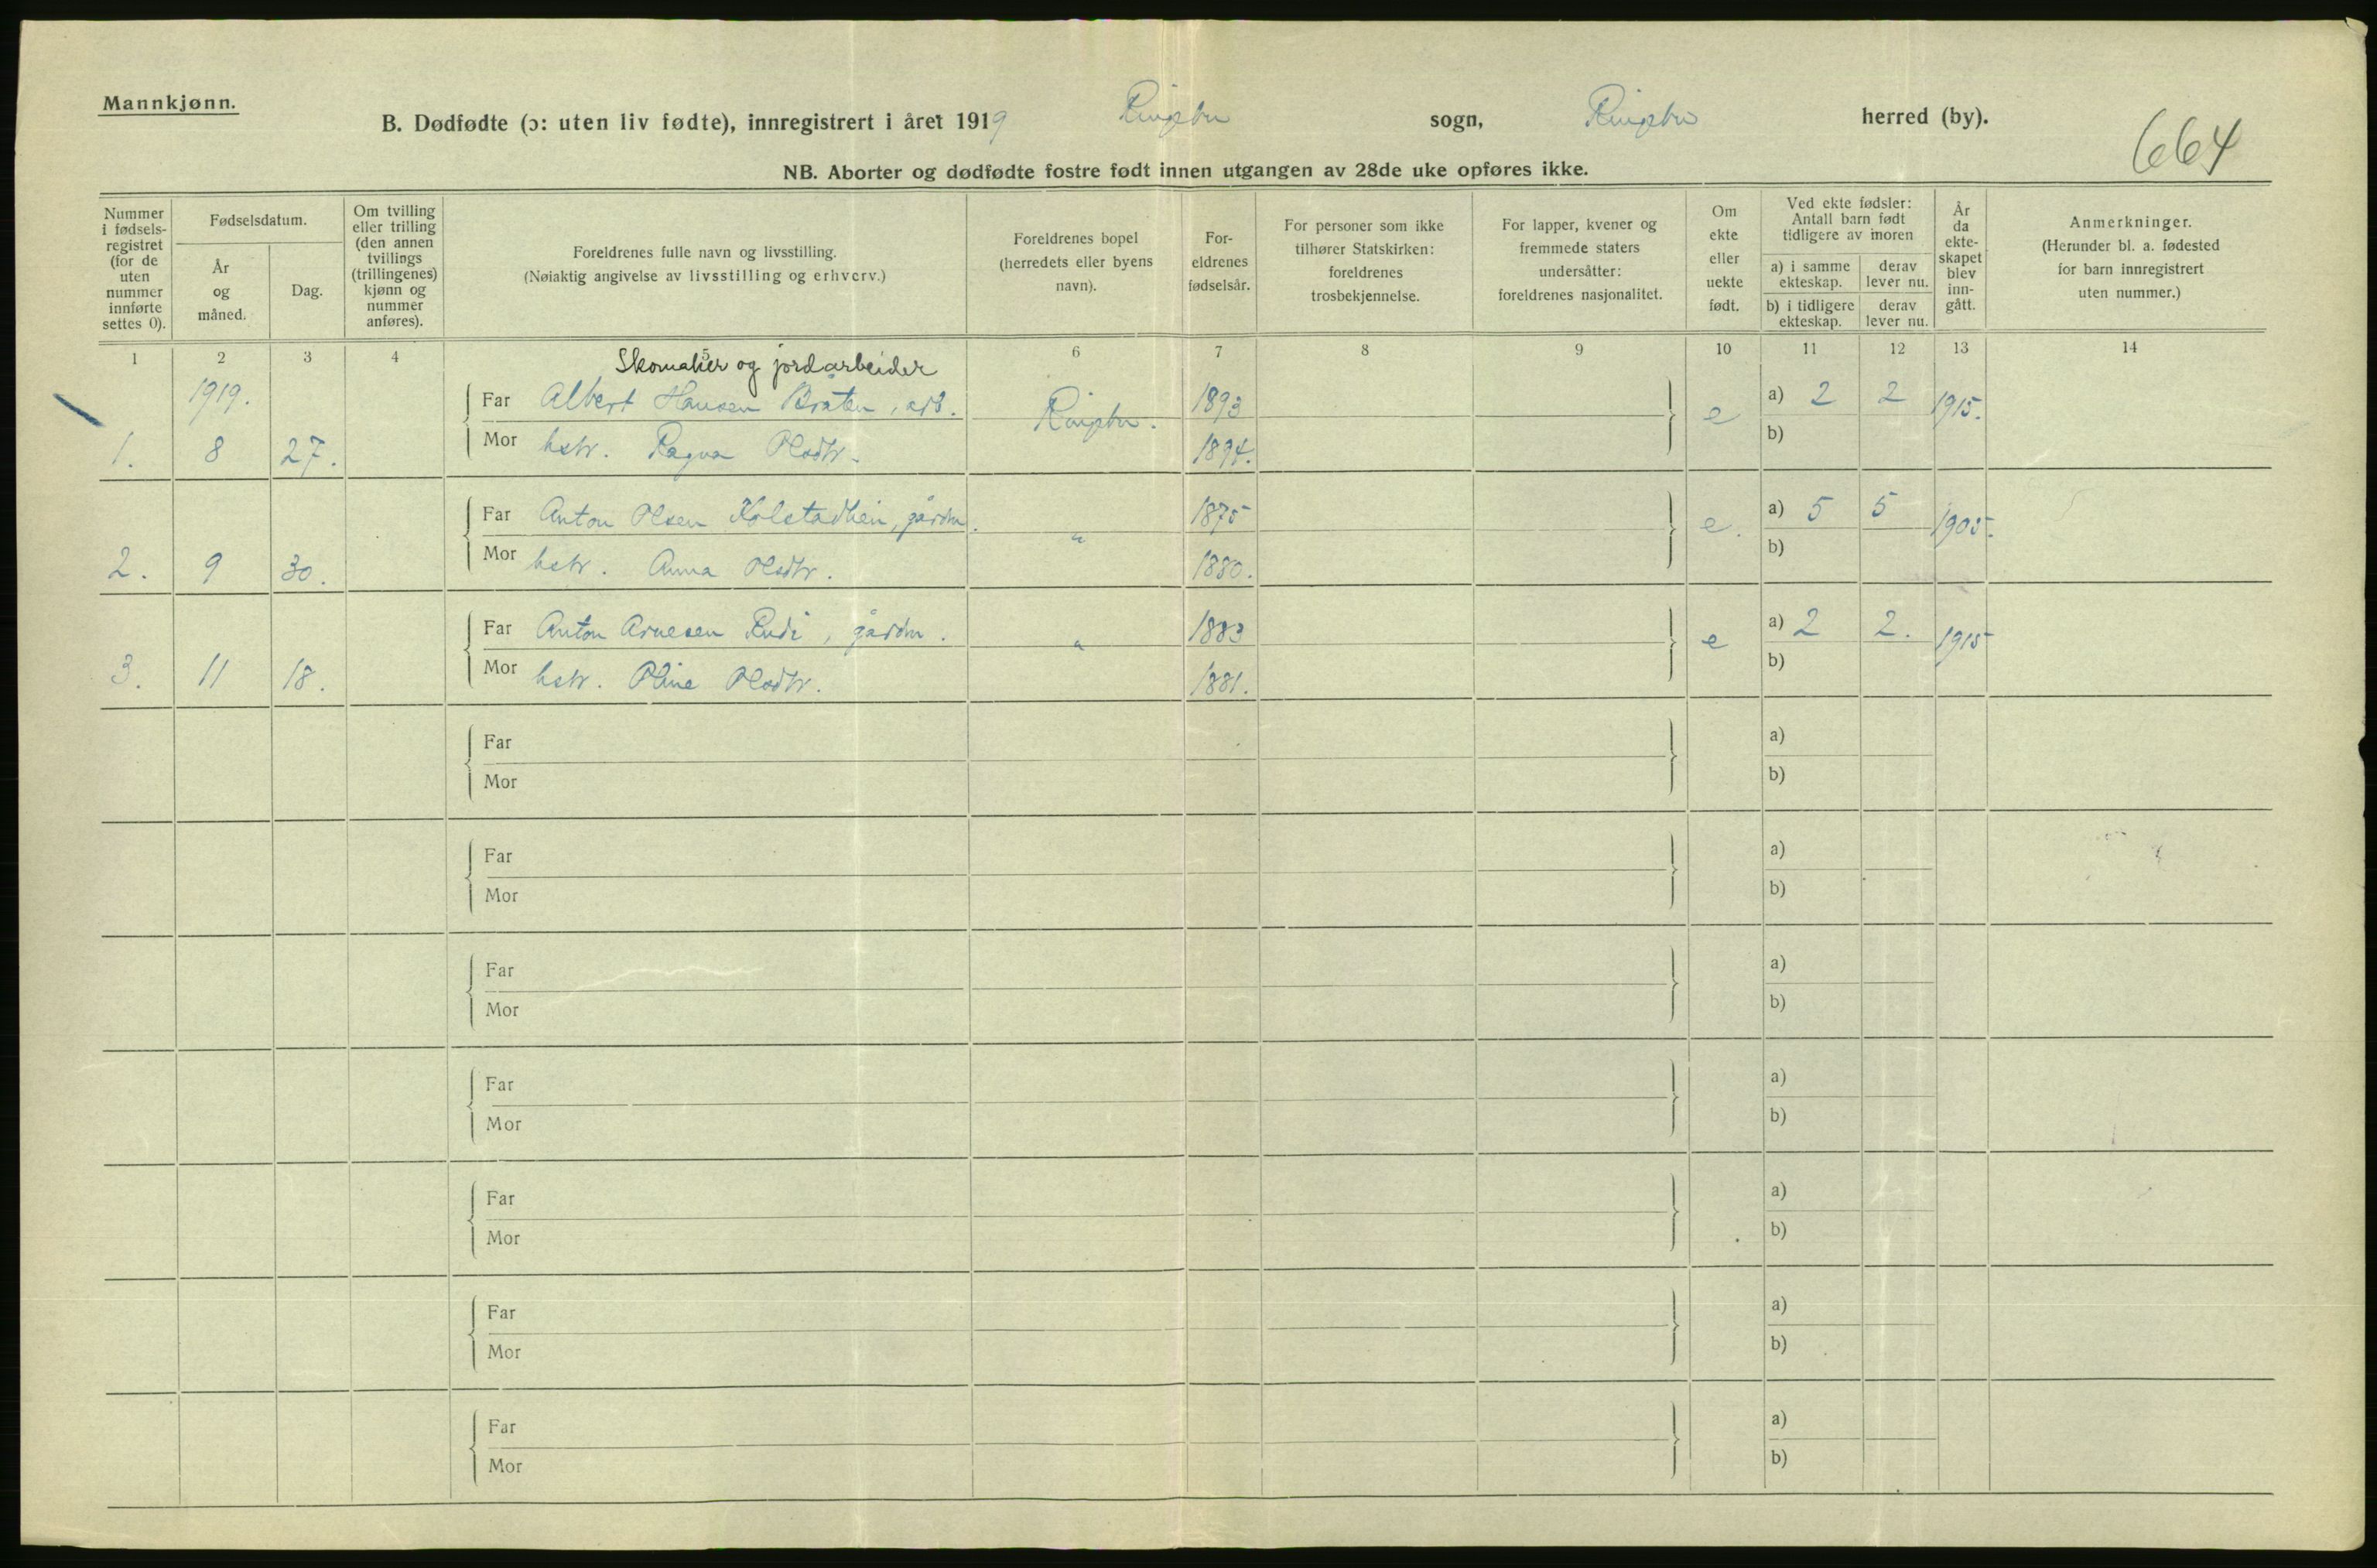 Mannkjønn.
B. Dødfødte (ɔ: uten liv fødte), innregistrert i året 1919 Ringebu sogn, Ringebu herred (by).
664
NB. Aborter og dødfødte fostre født innen utgangen av 28de uke opføres ikke.
Nummer i fødsels-registret (for de uten nummer innførte settes 0).
Fødselsdatum.
År og måned.
Dag.
Om tvilling eller trilling (den annen tvillings (trillingenes) kjønn og nummer anføres).
Foreldrenes fulle navn og livsstilling.
(Nøiaktig angivelse av livsstilling og erhverv.)
Foreldrenes bopel (herredets eller byens navn).
For-eldrenes fødselsår.
For personer som ikke tilhører Statskirken: foreldrenes trosbekjennelse.
For lapper, kvener og fremmede staters undersåtter: foreldrenes nasjonalitet.
Om ekte eller uekte født.
Ved ekte fødsler: Antall barn født tidligere av moren
a) i samme ekteskap.
derav lever nu.
b) i tidligere ekteskap.
derav lever nu.
År da ekte-skapet blev inn-gått.
Anmerkninger.
(Herunder bl. a. fødested for barn innregistrert uten nummer.)
1 2 3 4 5 6 7 8 9 10 11 12 13 14
Skomaker og jordarbeider
1919.
Far Albert Hansen Bråten, arb. Ringebu. 1893 e a) 2 2 1915.
1. 8 27. Mor hstr. Ragna Olsdtr. 1894. b)
Far Anton Olsen Kolstadhein, gårdm. " 1875 e. a) 5 5 1905.
2. 9 30. Mor hstr. Anna Olsdtr. 1880. b)
Far Anton Arnesen Rudi, gårdm. " 1883 e a) 2 2. 1915
3. 11 18. Mor hstr. Oline Olsdtr. 1881. b)
Far a)
Mor b)
Far a)
Mor b)
Far a)
Mor b)
Far a)
Mor b)
Far a)
Mor b)
Far a)
Mor b)
Far a)
Mor b)